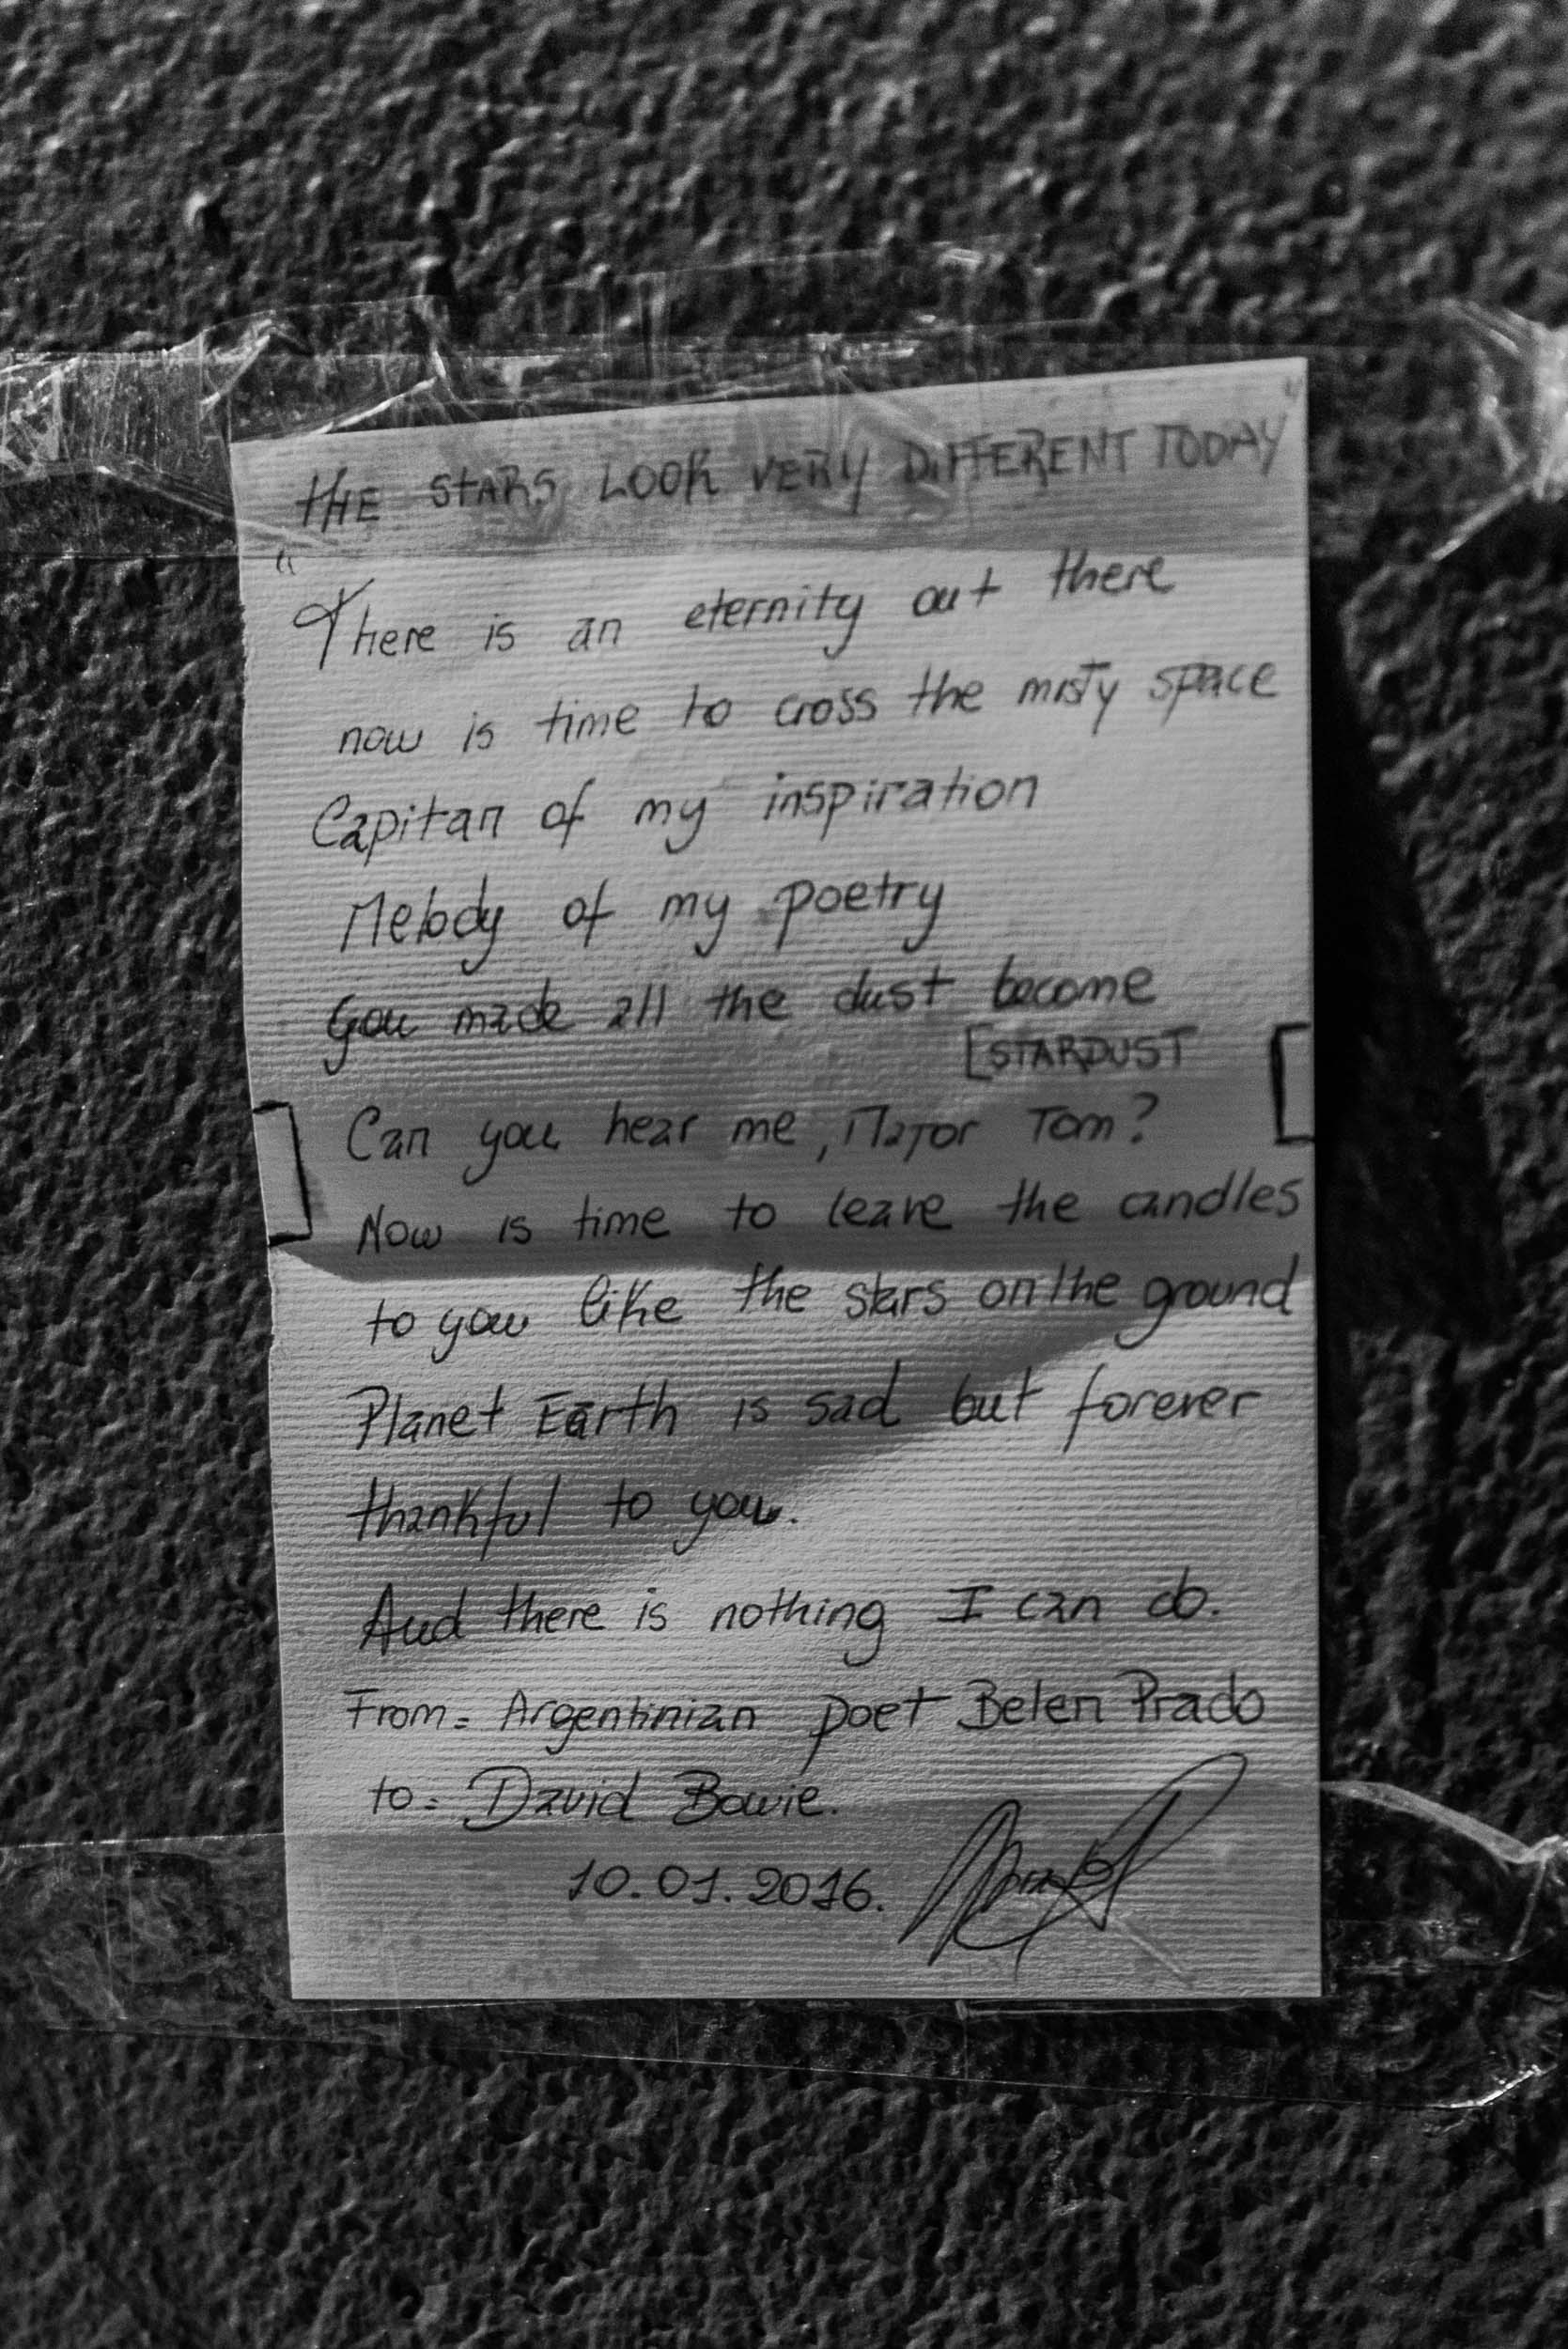 "THE STARS LOOK VERY DIFFERENT TODAY"
There is an eternity out there
now is time to cross the misty space
Capitan of my inspiration
Melody of my poetry
You made all the dust become
[STARDUST
Can you hear me, Major Tom?
Now is time to leave the candles
to you like the stars on the ground
Planet Earth is sad but forever
thankful to you.
And there is nothing I can do.
From= Argentinian poet Belen Prado
to= David Bowie.
10.01.2016.